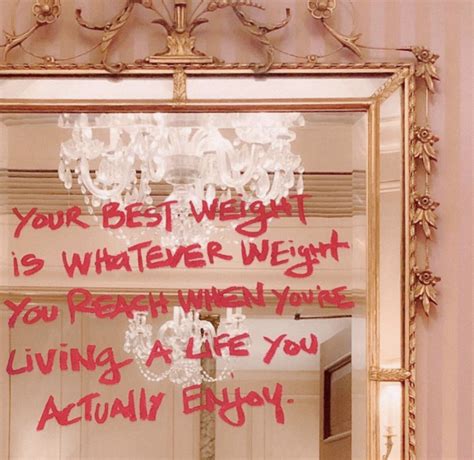 YOUR BEST WEIGHT
iS WHATEVER WEIGHT
YOU REACH WHEN YOU'RE
LiViNG A LiFE YOU
ACTUALLY ENJOY.